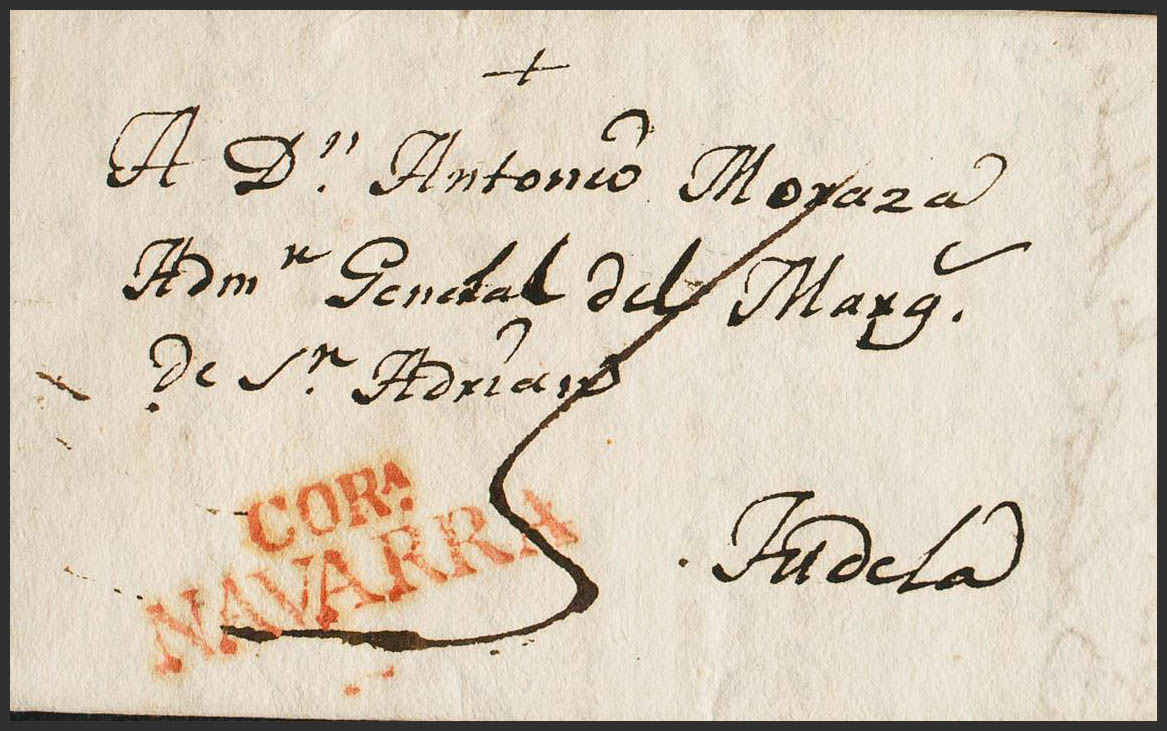 +
A Dⁿ. Antonio Moraza
Admʳ General del Marq.
de Sⁿ. Adrian
5
CORᴬ.
NAVARRA
Tudela